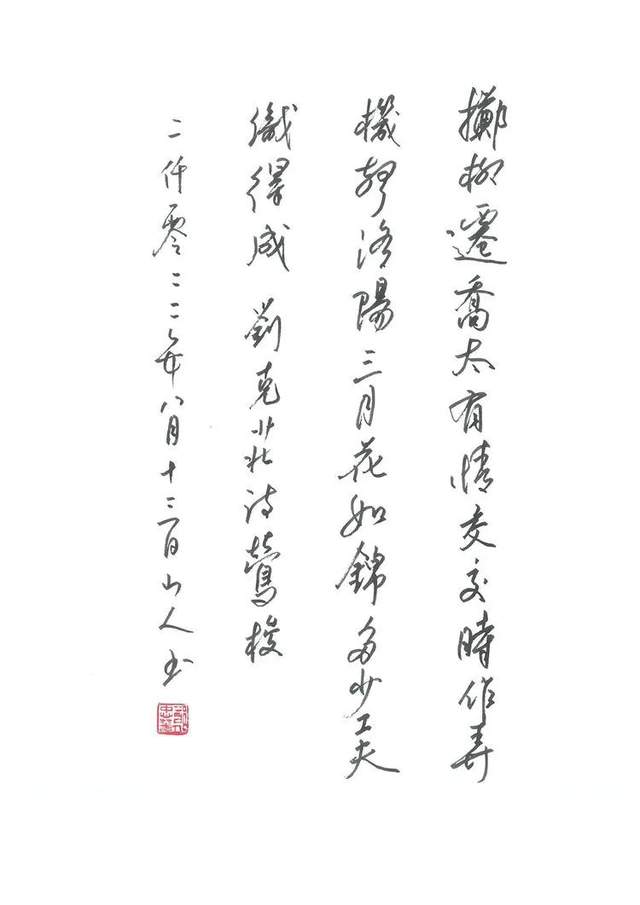 擲柳遷喬太有情交交時作弄
機聲洛陽三月花如錦多少工夫
織得成 劉克莊詩鶯梭
二仟零二二年八月十三日山人书